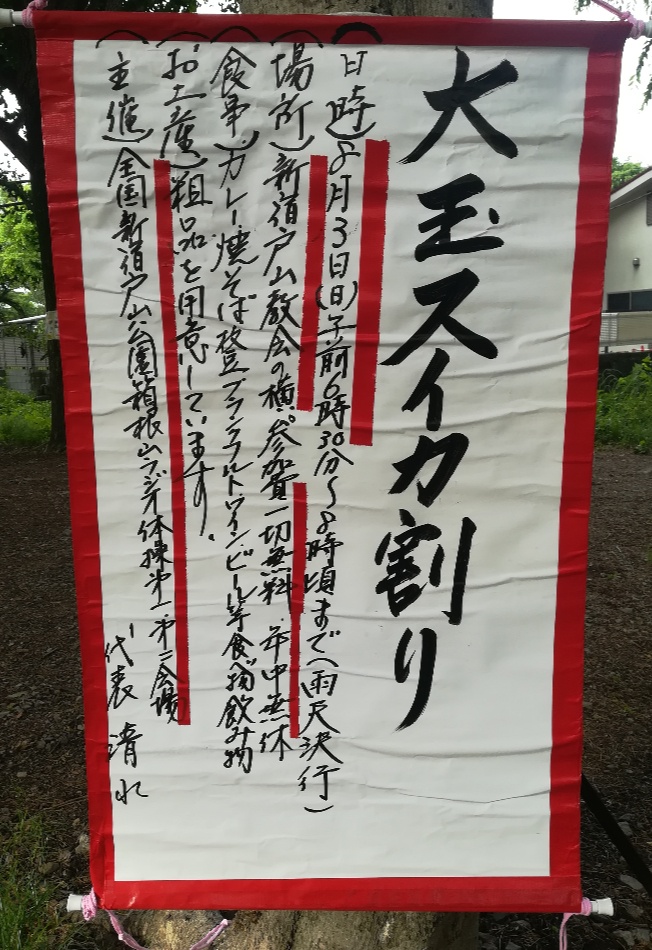 大玉スイカ割り
(日時)8月3日(日)午前6時30分〜8時頃まで(雨天決行)
(場所)新宿戸山教会の横。参加費一切無料 年中無休
(食事)カレー焼そば 等食べ物飲み物
(お土産)粗品を用意しています。
(主催)全国新宿戸山公園箱根山ラジオ体操第一・第二会場
代表 清水